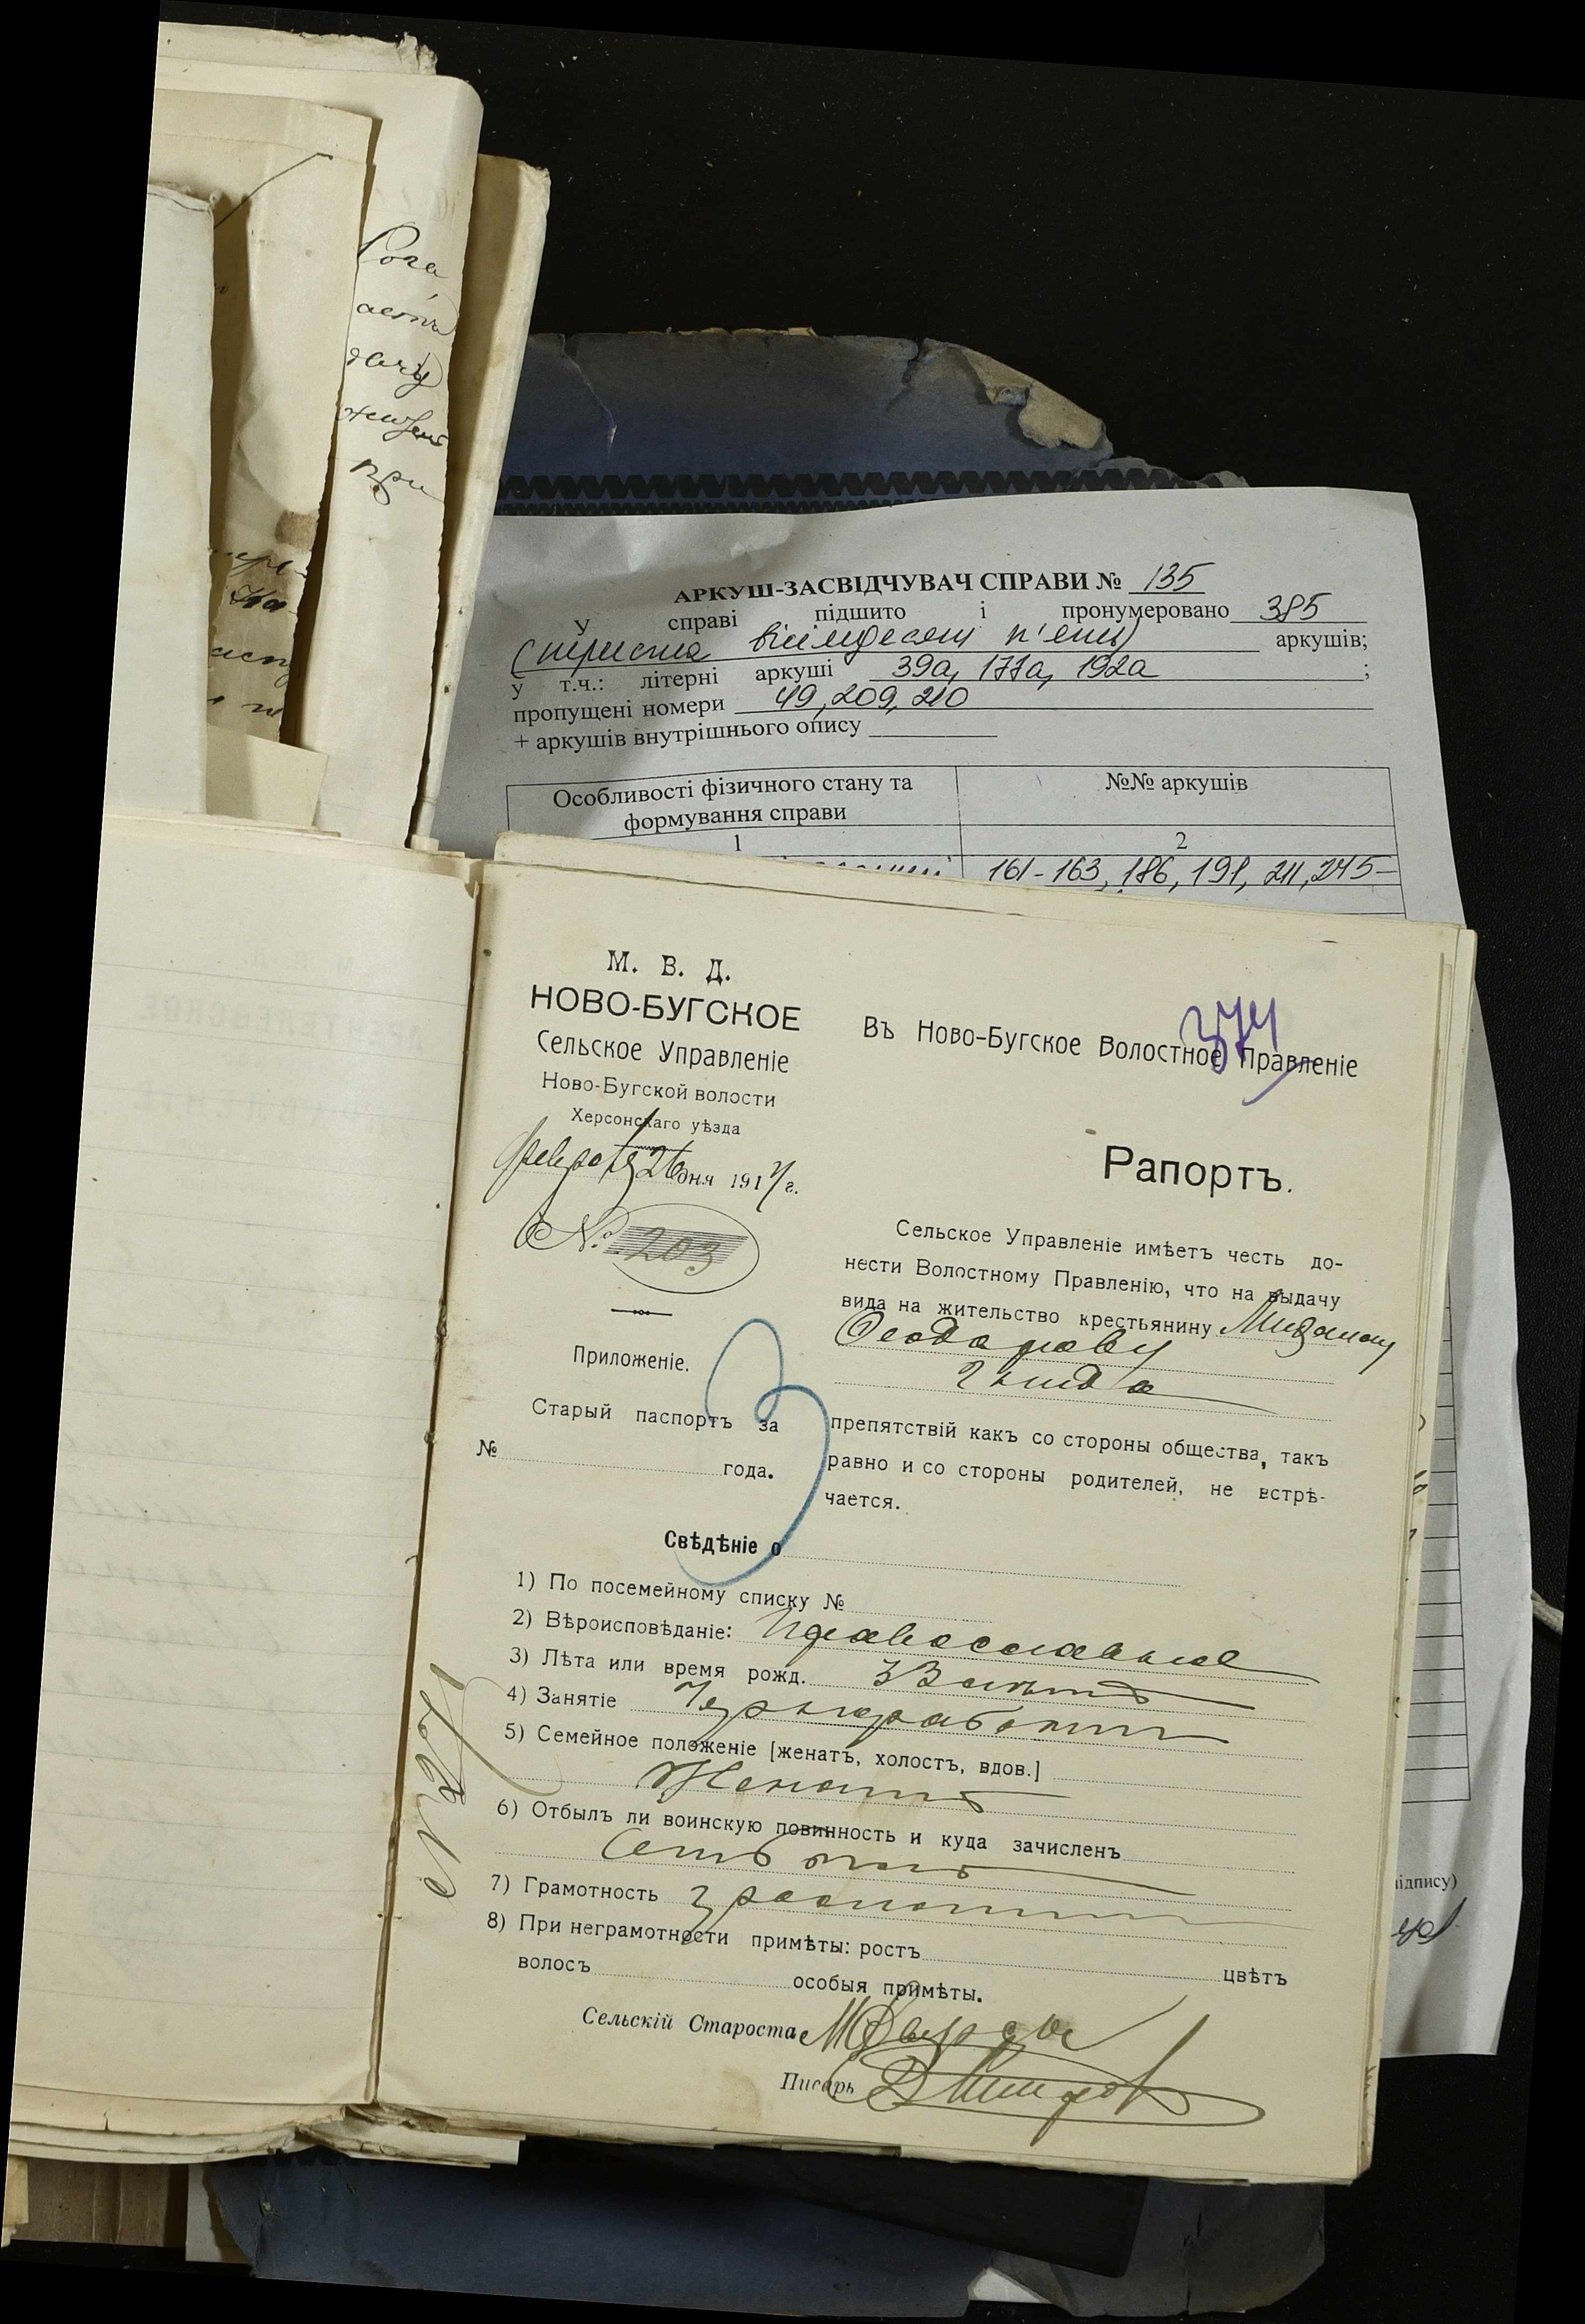 Рога
при
АРКУШ-ЗАСВІДЧУВАЧ СПРАВИ № 135
У справі підшито і пронумеровано 385
(триста вісімдесят п'ять) аркушів;
у т.ч.: літерні аркуші 39а, 177а, 192а ;
пропущені номери 49, 209, 210
+ аркушів внутрішнього опису
Особливості фізичного стану та формування справи
№№ аркушів
1
2
161-163, 186, 191, 211, 245-
М. В. Д.
НОВО-БУГСКОЕ
Сельское Управленіе
Ново-Бугской волости
Херсонскаго уѣзда
Февраля 26 дня 1917 г.
№ 203
374
Въ Ново-Бугское Волостное Правленіе
Рапортъ.
Сельское Управленіе имѣетъ честь до-
нести Волостному Правленію, что на выдачу
вида на жительство крестьянину
Феодорову
препятствій какъ со стороны общества, такъ
равно и со стороны родителей, не встрѣ-
чается.
Приложеніе.
Старый паспортъ за
№ года.
Свѣдѣніе о
1) По посемейному списку №
2) Вѣроисповѣданіе: Православное
3) Лѣта или время рожд.
4) Занятіе Чернорабочій
5) Семейное положеніе [женатъ, холостъ, вдов.]
Женатъ
6) Отбылъ ли воинскую повинность и куда зачисленъ
7) Грамотность грамотный
8) При неграмотности примѣты: ростъ цвѣтъ
волосъ особыя примѣты.
Сельскій Староста
Писарь
ідпису)